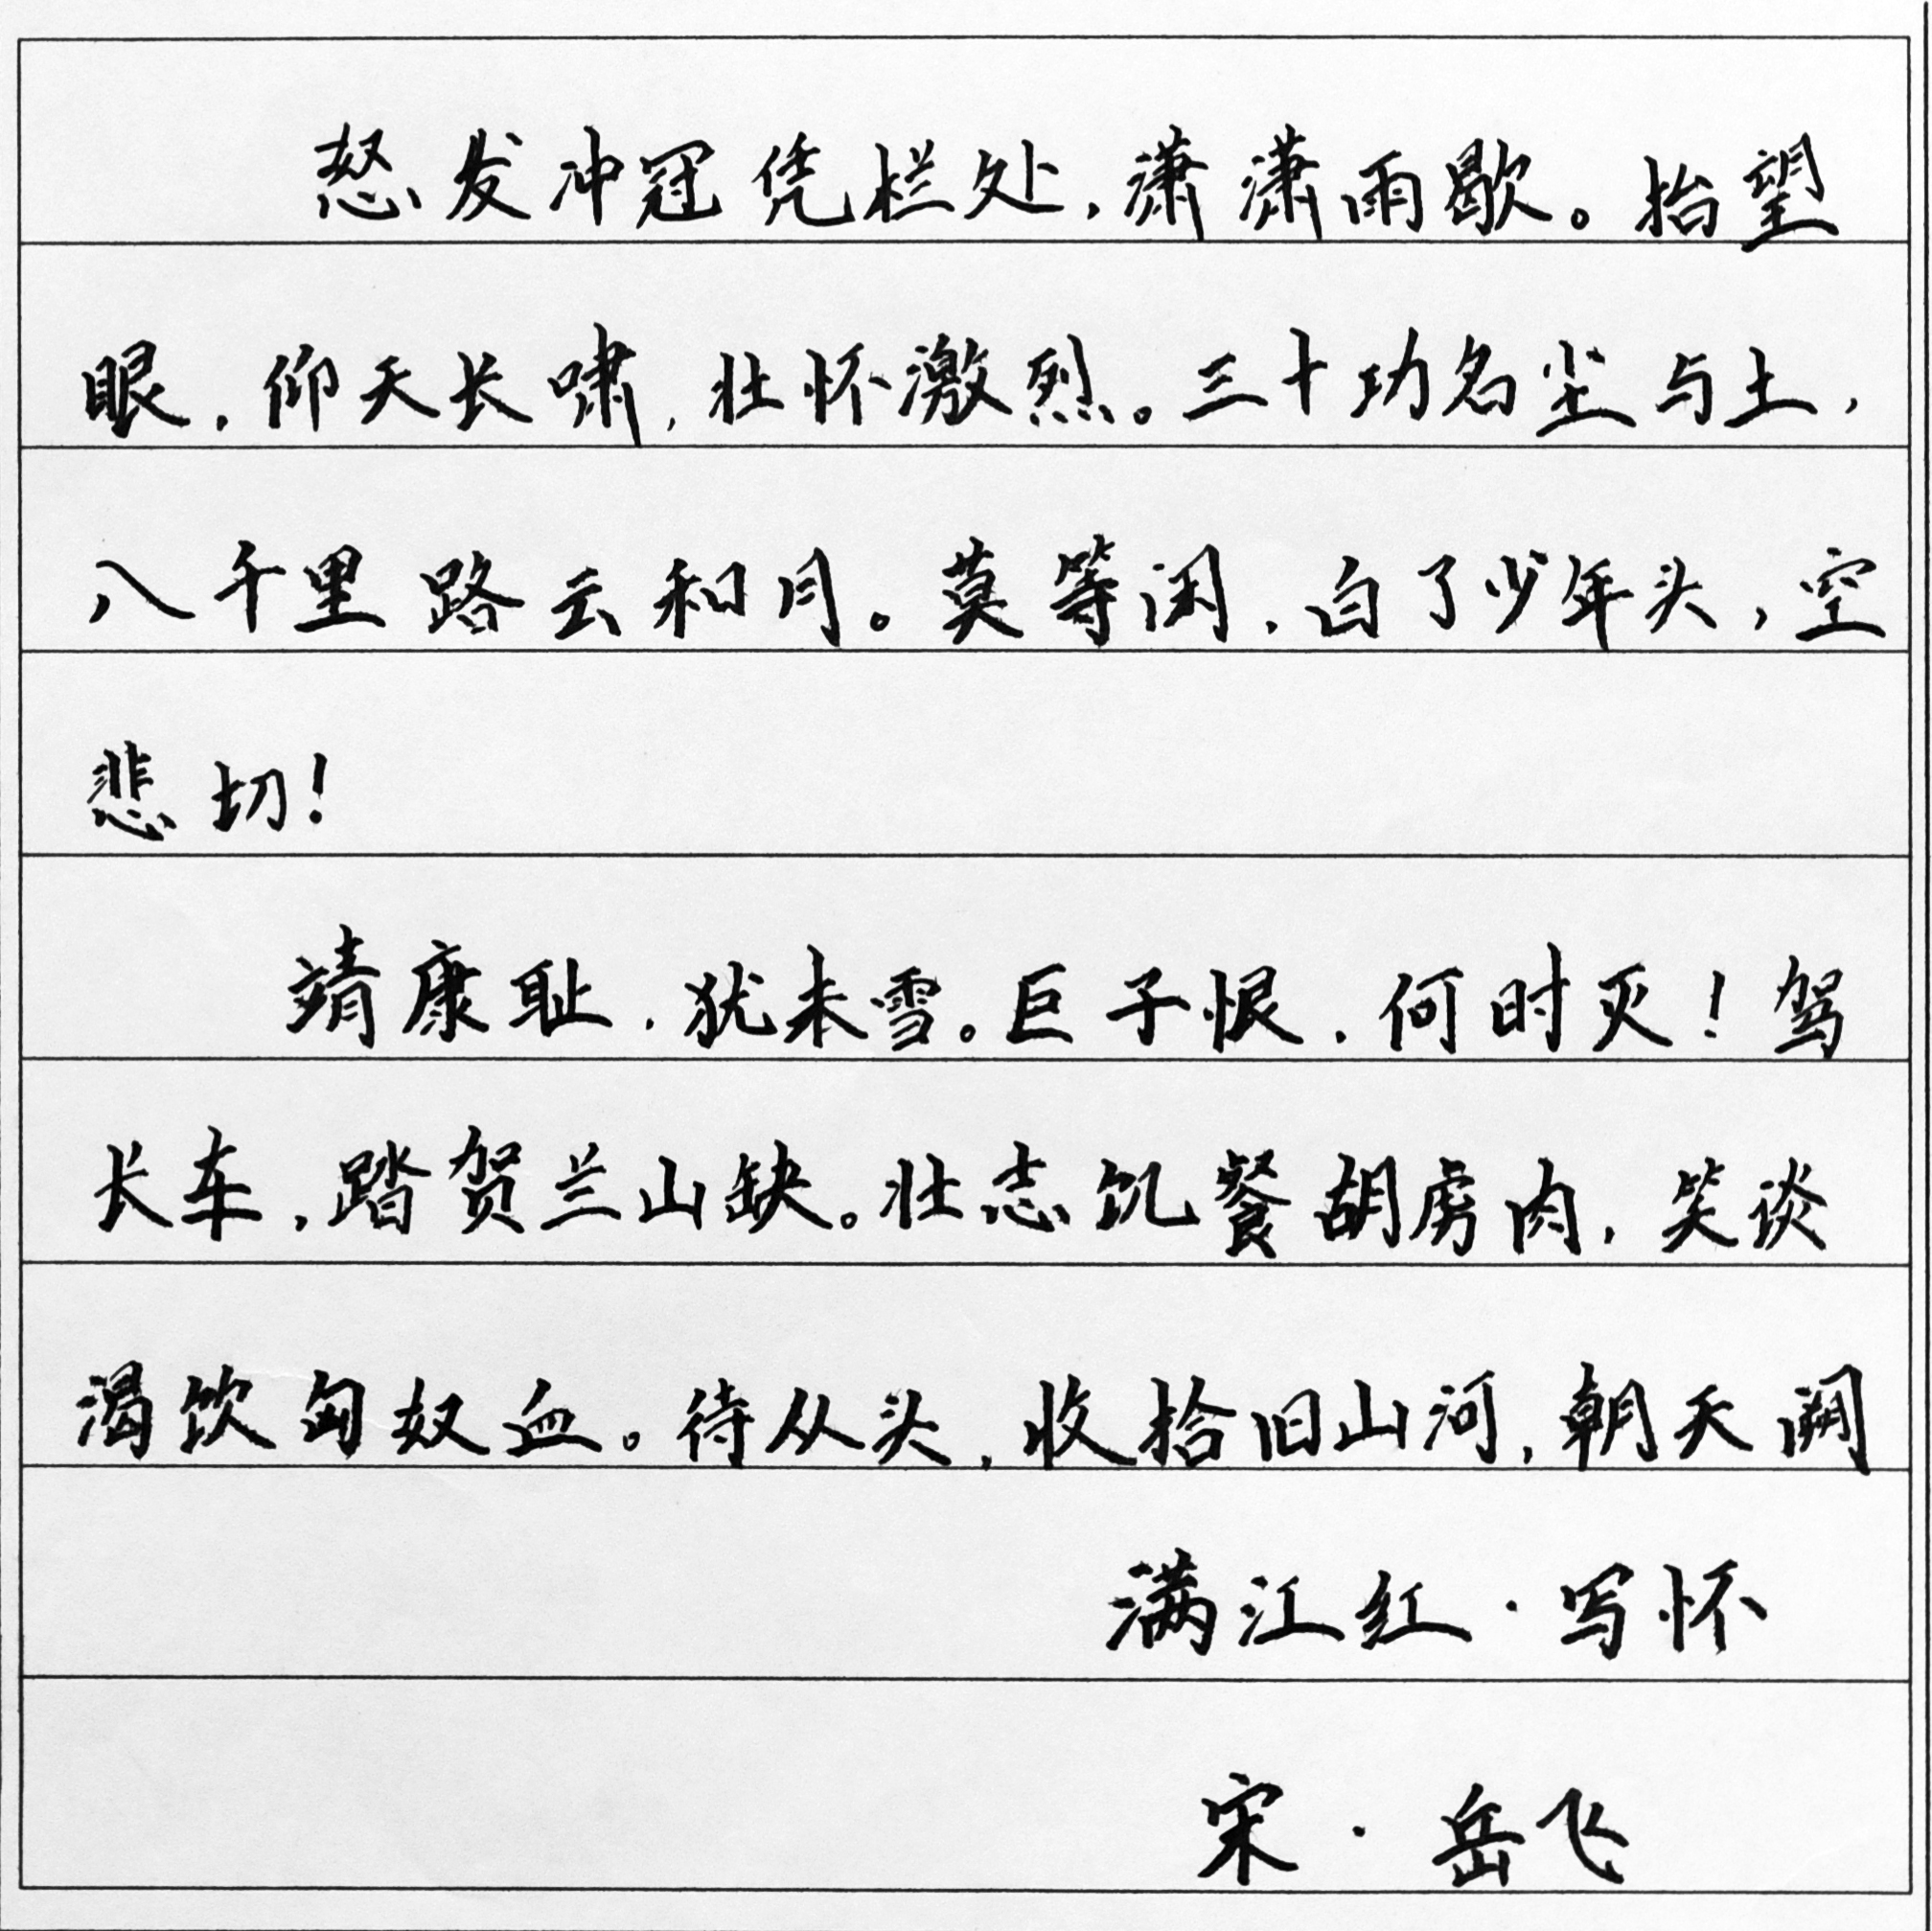 怒发冲冠凭栏处,潇潇雨歇。抬望
眼,仰天长啸,壮怀激烈。三十功名尘与土,
八千里路云和月。莫等闲,白了少年头,空
悲切!
靖康耻,犹未雪。巨子恨,何时灭!驾
长车,踏贺兰山缺。壮志饥餐胡虏肉,笑谈
渴饮匈奴血。待从头,收拾旧山河,朝天阙
满江红·写怀
宋·岳飞